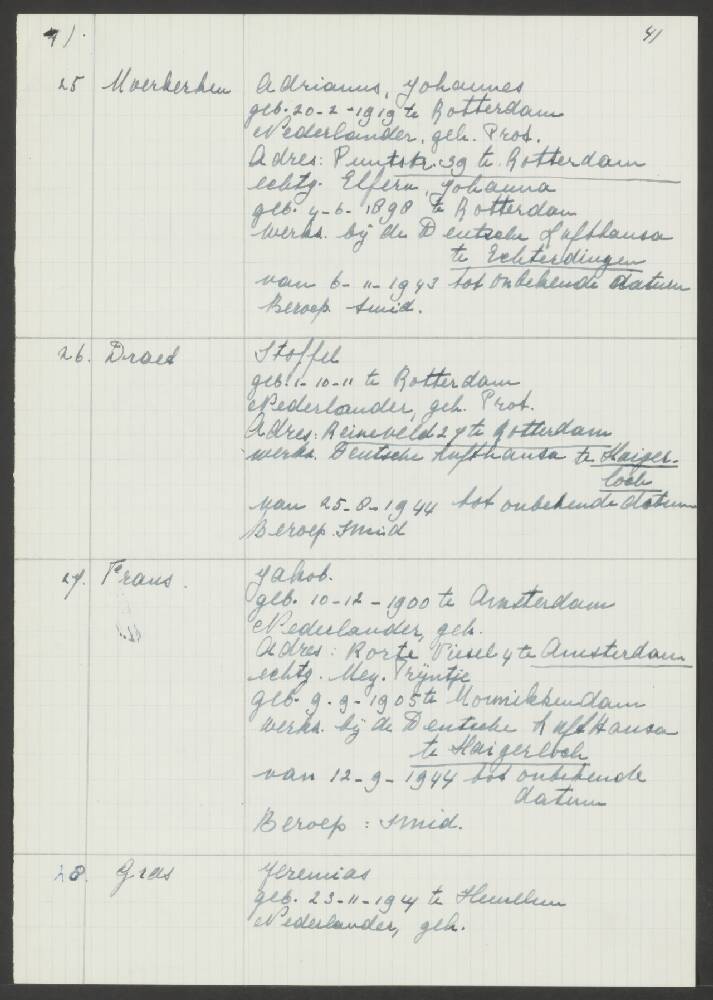 41
25 Moerkerken Adrianus, Johannes
geb. 20-2-1919 te Rotterdam
Nederlander, geh. Prot.
Adres: Puntstr. 39 te Rotterdam
echtg. Elfern, Johanna
geb. 4-6-1898 te Rotterdam
werkz. bij de Deutsche Lufthansa
te Echterdingen
van 6-11-1943 tot onbekende datum
Beroep smid.
26. Draet Stoffel
geb. 1-10-11 te Rotterdam
Nederlander, geh. Prot.
Adres: Reineveld 27 te Rotterdam
werkz. Deutsche Lufthansa te Haiger-
loch
van 25-8-1944 tot onbekende datum
Beroep smid
27. Frans. Jakob.
geb. 10-12-1900 te Amsterdam
Nederlander, geh.
Adres: Korte 4 te Amsterdam
echtg. Mey. Trijntje
geb. 9-9-1905 te Monnikkendam
werkz. bij de Deutsche LuftHansa
te Haigerloch
van 12-9-1944 tot onbekende
datum
Beroep: smid.
28. Gras Jeremias
geb. 23-11-1914 te
Nederlander, geh.